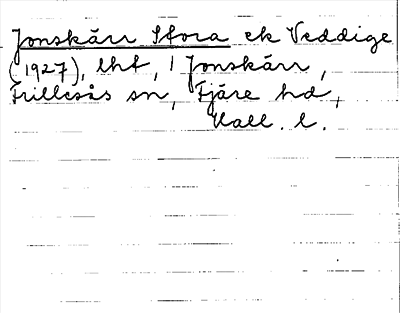 Jonskärr Stora ek Veddige
(1927), lht, 1 Jonskärr,
Frillesås sn, Fjäre hd,
Hall. l.